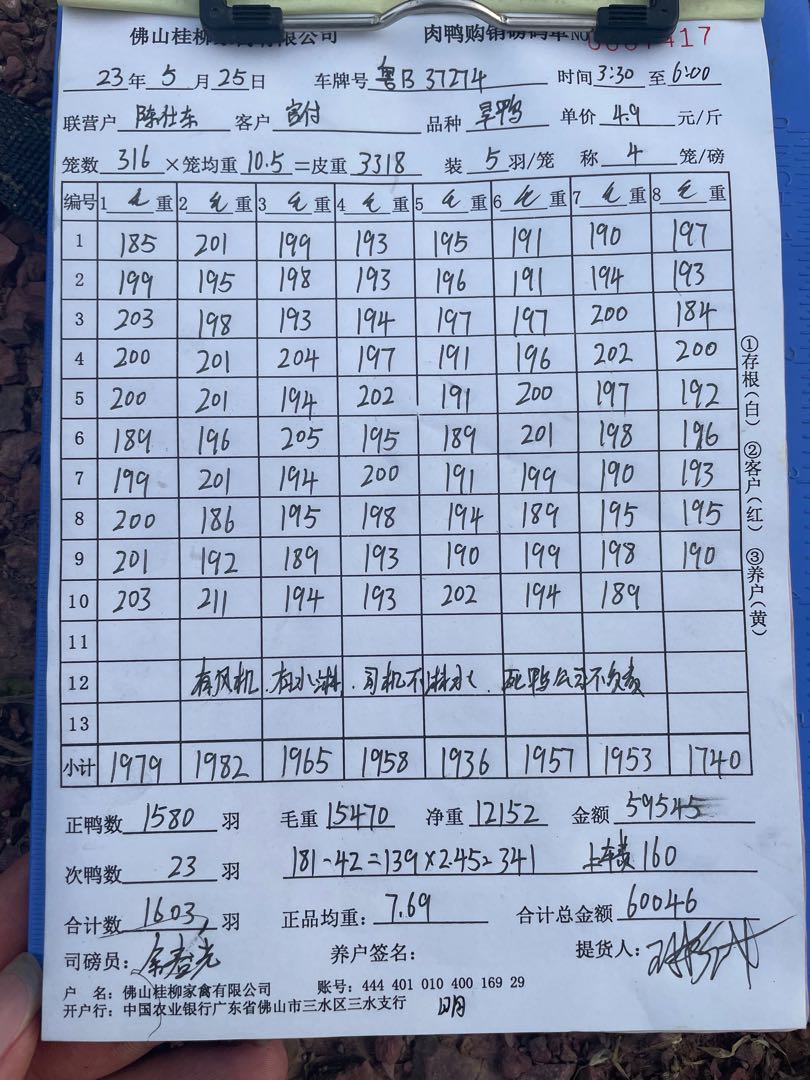 佛山桂柳家禽有限公司 肉鸭购销磅码单 NO
23年5月25日 车牌号 粤B37274 时间3:30至6:00
联营户 陈仕东 客户 品种 旱鸭 单价 4.9 元/斤
笼数 316 ×笼均重 10.5 =皮重 3318 装 5 羽/笼 称 4 笼/磅
编号 1 毛 重 2 毛 重 3 毛 重 4 毛 重 5 毛 重 6 毛 重 7 毛 重 8 毛 重
1 185 201 199 193 195 191 190 197
2 199 195 198 193 196 191 194 193
3 203 198 193 194 197 197 200 184
4 200 201 204 197 191 196 202 200
5 200 201 194 202 191 200 197 192
6 189 196 205 195 189 201 198 196
7 199 201 194 200 191 199 190 193
8 200 186 195 198 194 189 195 195
9 201 192 189 193 190 199 198 190
10 203 211 194 193 202 194 189
11
12 有风机.有水淋.司机不淋水.死鸭公司不负责
13
小计 1979 1982 1965 1958 1936 1957 1953 1740
①存根(白) ②客户(红) ③养户(黄)
正鸭数 1580 羽 毛重 15470 净重 12152 金额 59545
次鸭数 23 羽 181-42=139×2.45=341 上车费160
合计数 1603 羽 正品均重: 7.69 合计总金额 60046
司磅员: 养户签名: 提货人:
户 名: 佛山桂柳家禽有限公司 账号: 444 401 010 400 169 29
开户行: 中国农业银行广东省佛山市三水区三水支行